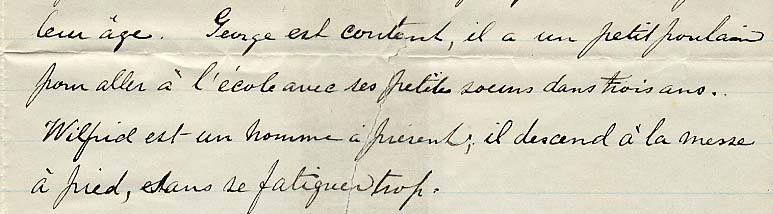 leur âge. George est content, il a un petit poulain
pour aller à l'école avec ses petites soeurs dans trois ans.
Wilfrid est un homme à présent; il descend à la messe
à pied, sans se fatiguer trop.